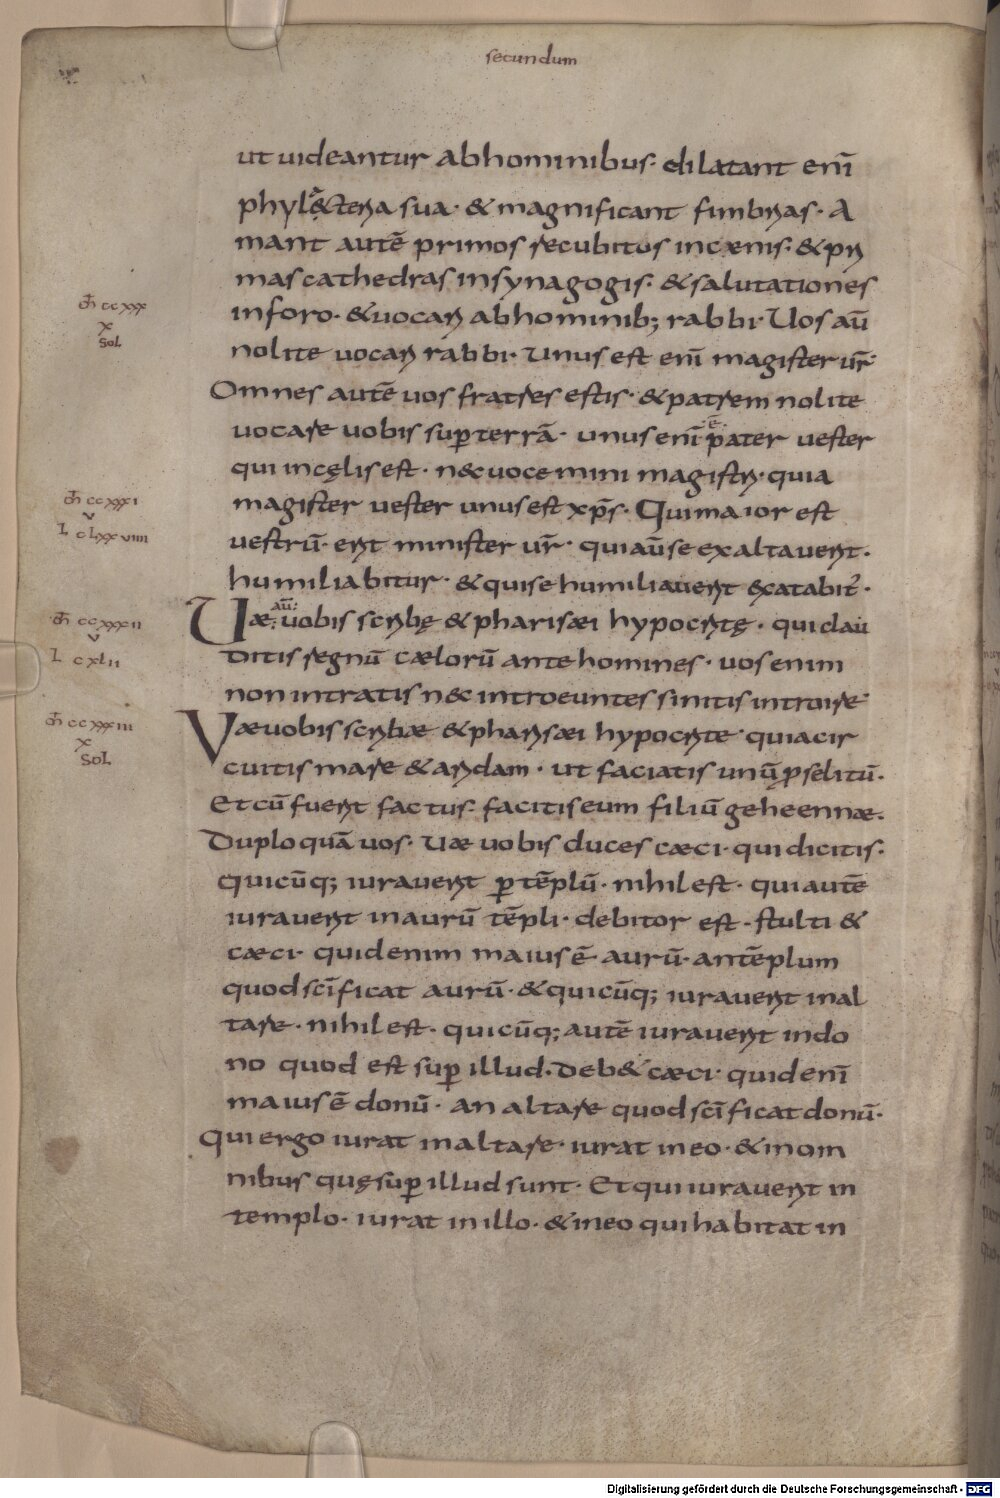 secundum
ut uideantur abhominibus· dilatant enī
phyl&teria sua· & magnificant fimbrias· A
mant autē primos recubitus incænis· & pri
mas cathedras insynagogis· & salutationes
inforo· & uocari abhominib; rabbi· Uos aū
nolite uocari rabbi· Unus est enī magister ur̄·
Omnes autē uos fratres estis· & patrem nolite
uocare uobis sup terrā· unus enī ē pater uester
qui incęlis est· nec uocemini magistri· quia
magister uester unus est xp̄s· Qui maior est
uestrū· erit minister ur̄· qui aū se exaltauerit·
humiliabitur· & qui se humiliauerit exaltabit̄·
Uæ aū· uobis scribę & pharisæi hypocritę· qui clau
ditis regnū cælorū ante homines· uos enim
non intratis nec introeuntes sinitis introire
Væ uobis scribæ & pharisæi hypocrite· quia cir
cuitis mare & aridam· ut faciatis unū proselitū·
Et cū fuerit factus· facitis eum filiū geheennæ·
Duplo quā uos· Uæ uobis duces cæci· qui dicitis·
quicūq; iurauerit p tēplū· nihil est· qui autē
iurauerit in aurū tēpli· debitor est· stulti &
cæci· quid enim maius ē· aurū· an tēplum
quod scīficat aurū· & quicūq; iurauerit in al
tare· nihil est· quicūq; autē iurauerit in do
no quod est sup illud· Deb& cæci· quid enī
maius ē donū· an altare quod scīficat donū·
Qui ergo iurat in altare· iurat in eo· & in om
nibus quę sup illud sunt· Et qui iurauerit in
templo· iurat in illo· & in eo qui habitat in
m̄ ccxxx
x
sol
m̄ ccxxxi
v
L clxxviiii
m̄ ccxxxii
v
L cxlii
m̄ ccxxxiii
x
sol
Digitalisierung gefördert durch die Deutsche Forschungsgemeinschaft - DFG